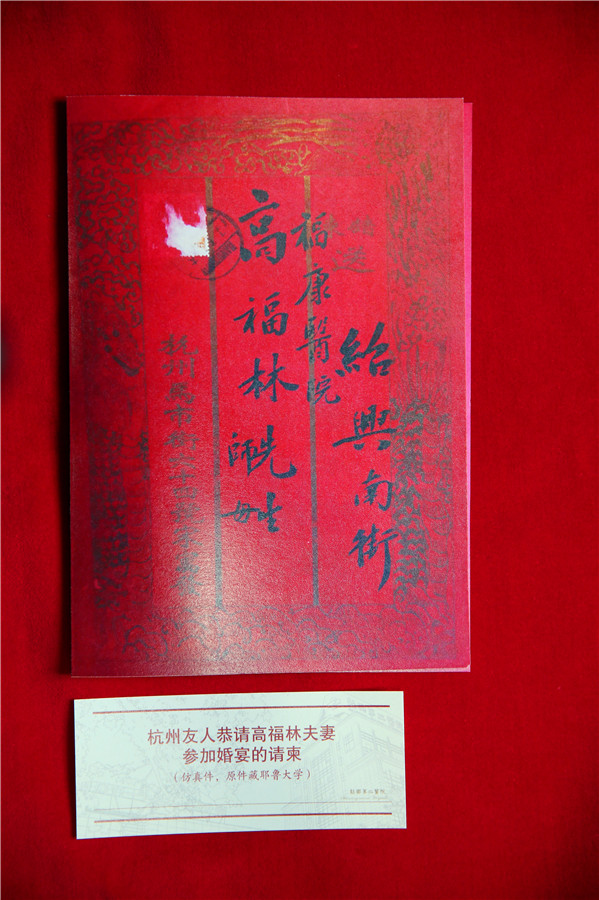 紹興南街
福康醫院
高福林先生師母
杭州
杭州友人恭请高福林夫妻
参加婚宴的请柬
（仿真件，原件藏耶鲁大学）